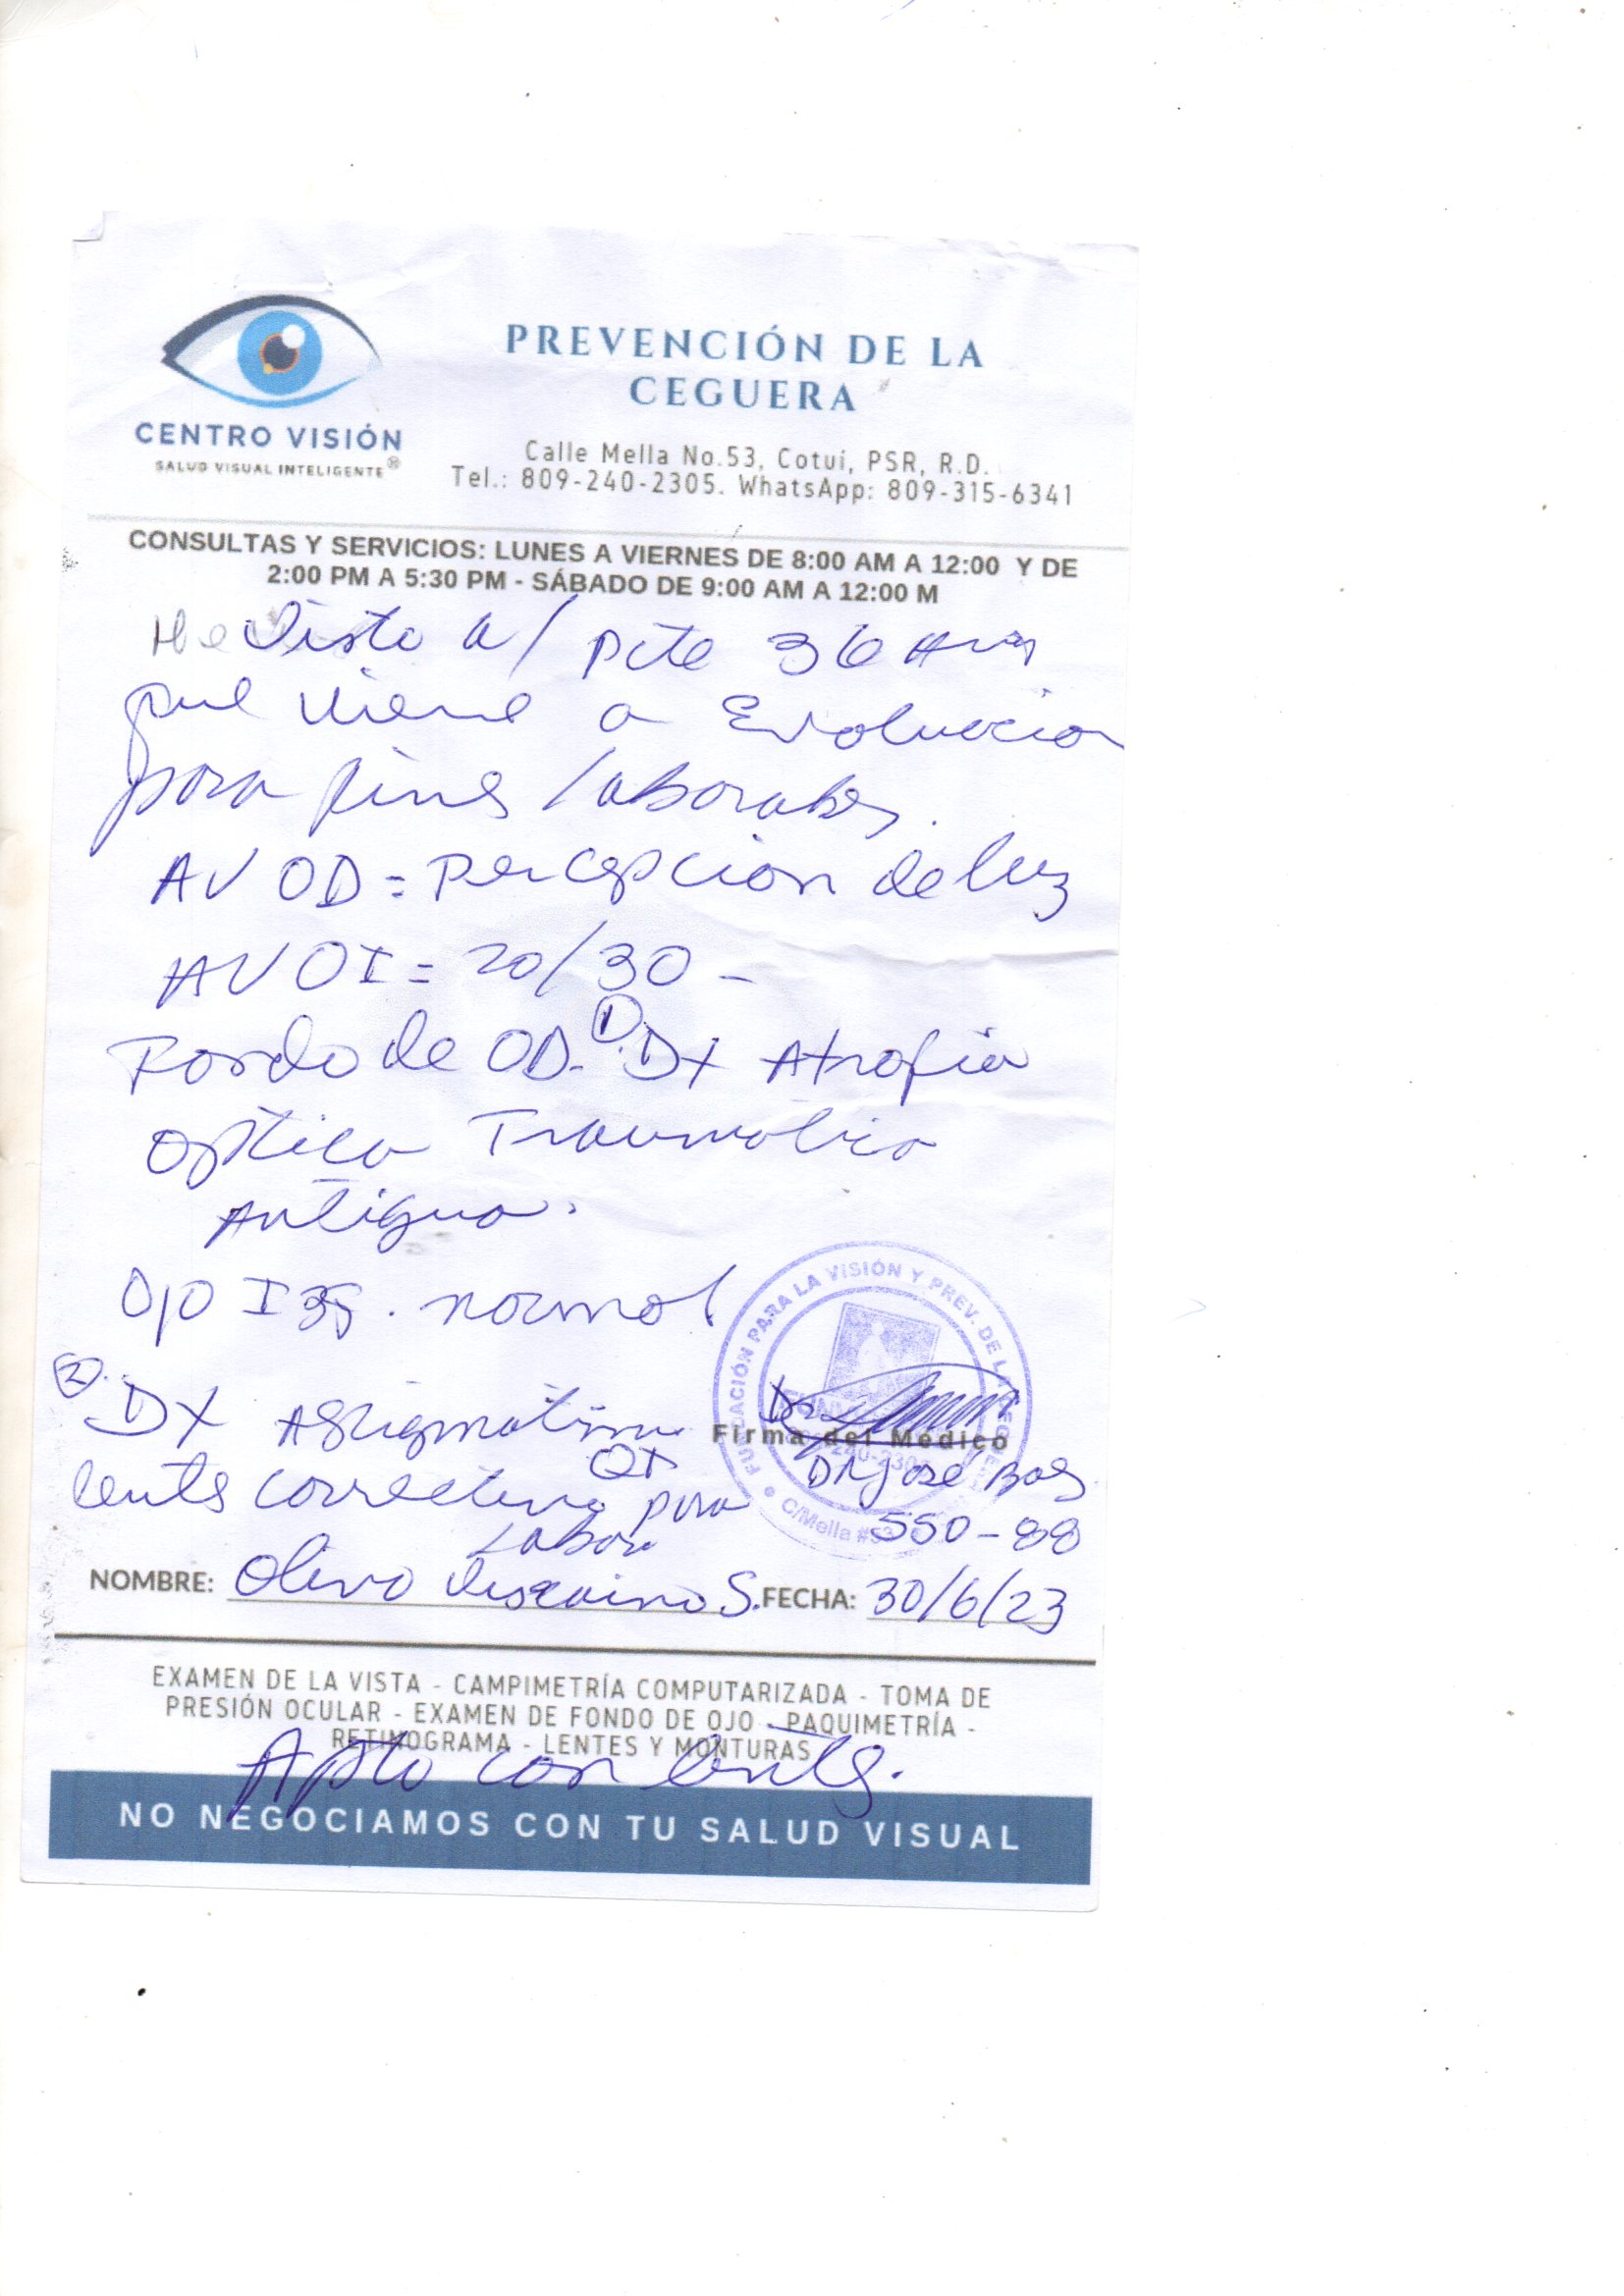 PREVENCIÓN DE LA
CEGUERA
CENTRO VISIÓN
SALUD VISUAL INTELIGENTE®
Calle Mella No.53, Cotuí, PSR, R.D.
Tel.: 809-240-2305. WhatsApp: 809-315-6341
CONSULTAS Y SERVICIOS: LUNES A VIERNES DE 8:00 AM A 12:00 Y DE
2:00 PM A 5:30 PM - SÁBADO DE 9:00 AM A 12:00 M
He Visto a/ pcte 36 Años
que viene a Evaluacion
para fines laborales.
AV OD = Percepcion de luz
AV OI = 20/30 -
Fondo de OD. ① Dx Atrofia
optica Traumatica
Antigua.
Ojo Izq. normal
② Dx Astigmatismo
OI
lentes correctivos para
Labor
FUNDACIÓN PARA LA VISIÓN Y PREV. DE LA CEGUERA
C/Mella #53
Firma del Médico
DR José Baez
550-88
NOMBRE: Olivo S. FECHA: 30/6/23
EXAMEN DE LA VISTA - CAMPIMETRÍA COMPUTARIZADA - TOMA DE
PRESIÓN OCULAR - EXAMEN DE FONDO DE OJO - PAQUIMETRÍA -
RETINOGRAMA - LENTES Y MONTURAS
Apto con lentes.
NO NEGOCIAMOS CON TU SALUD VISUAL